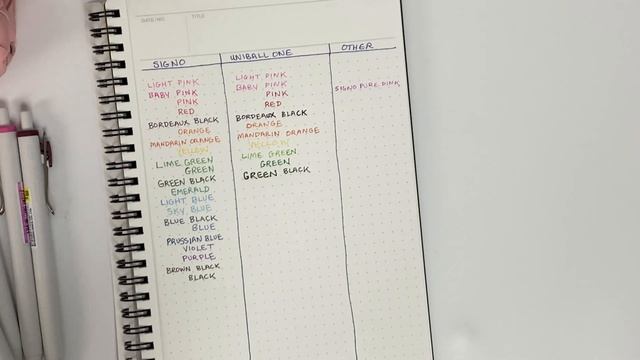 DATE/NO.
TITLE
SIGNO
UNIBALL ONE
OTHER
LIGHT PINK
BABY PINK
PINK
RED
BORDEAUX BLACK
ORANGE
MANDARIN ORANGE
YELLOW
LIME GREEN
GREEN
GREEN BLACK
EMERALD
LIGHT BLUE
SKY BLUE
BLUE BLACK
BLUE
PRUSSIAN BLUE
VIOLET
PURPLE
BROWN BLACK
BLACK
LIGHT PINK
BABY PINK
PINK
RED
BORDEAUX BLACK
ORANGE
MANDARIN ORANGE
YELLOW
LIME GREEN
GREEN
GREEN BLACK
SIGNO PURE PINK